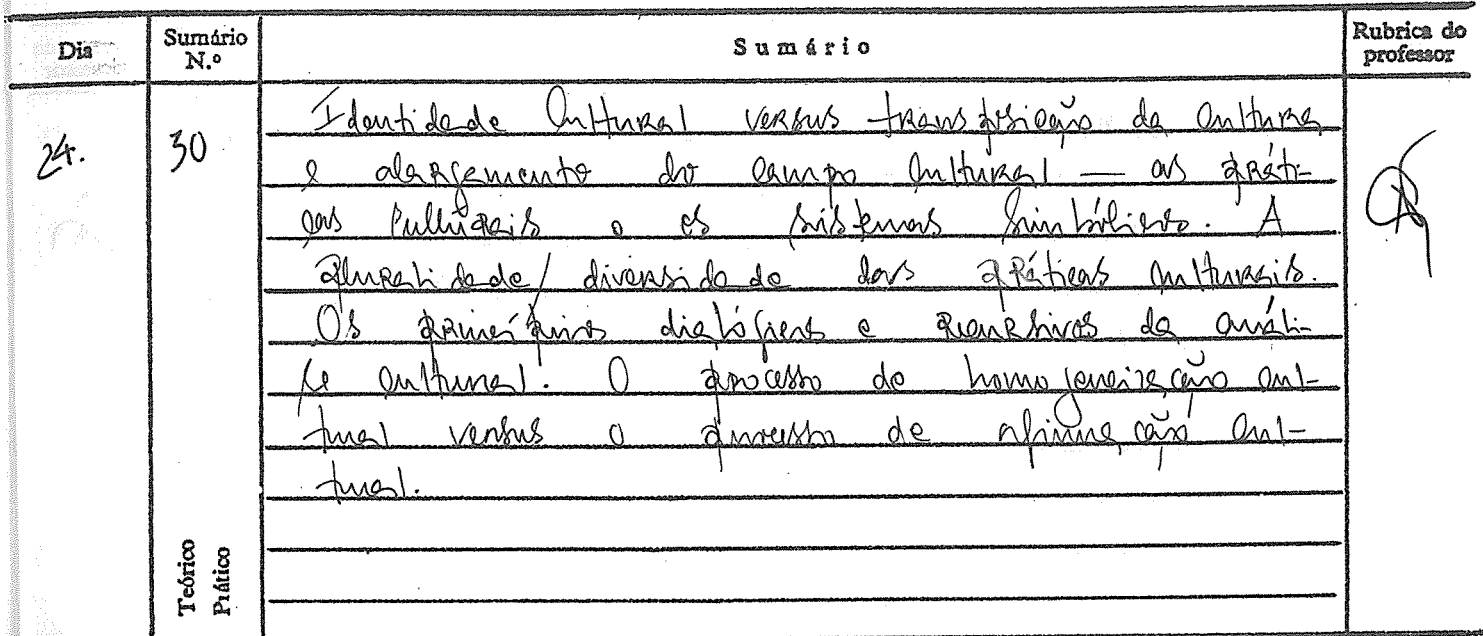 Dia
Sumário N.º
Sumário
Rubrica do professor
24.
30
Identidade Cultural versus transposição da Cultura
e alargamento do campo cultural — as práti-
cas culturais e os sistemas simbólicos. A
pluralidade/diversidade das práticas culturais.
Os princípios dialógicos e recursivos da análi-
se cultural. O processo de homogeneização cul-
tural versus o processo de afirmação cul-
tural.
Teórico
Prático